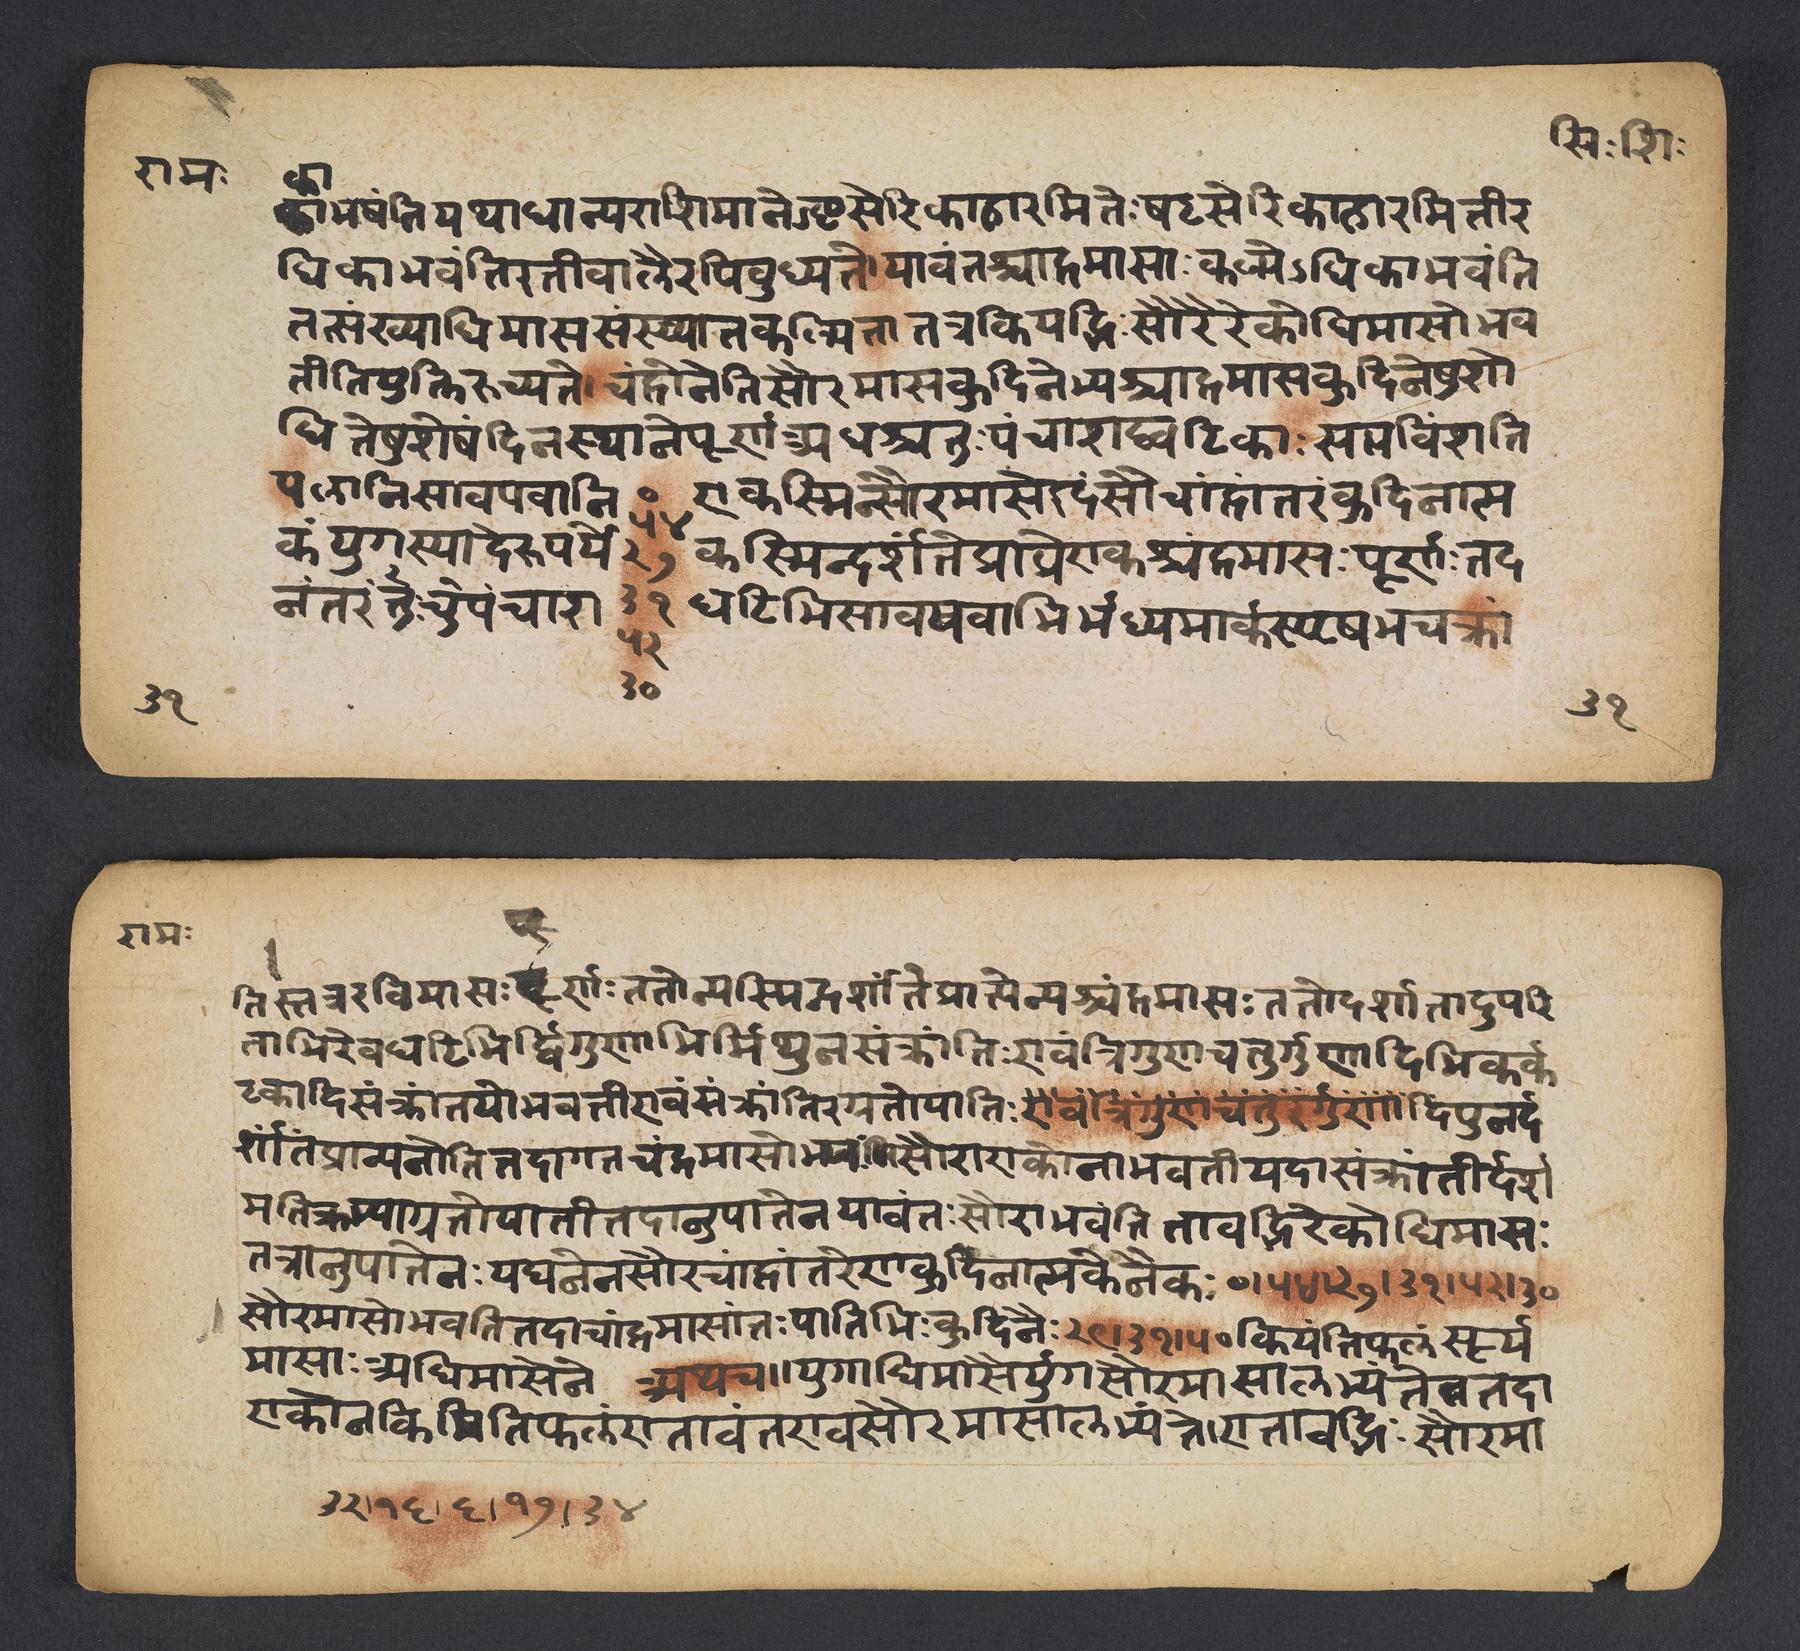 सिः शिः
रामः
का
का भवंति यथा धान्यराशिमाने ऽष्टसेरिकाढारमितेः षट्सेरिकाढारमितीर
धिका भवंतिरतीवालैरपिवुध्यते। यावंतश्चाद्रमासाः कल्पेऽधिका भवंति
तत्संख्याधिमाससंख्यातकल्पिता तत्रकियद्भिः सौरैरेकोधिमासो भव
तीतियुक्तिरुच्यते। चंद्रोनेतिसौरमासकुदिनेभ्यश्चाद्रमासकुदिनेषुशो
धितेषुशेषं दिनस्थाने पूर्णां अधश्चतुःपंचाशद्घटिकाः सप्तविंशति
पलानिसावयवानि ० एकस्मिन्सौरमासे इदंसौचांद्रांतरंकुदिनात्म
५४
कं युगस्यादेरुपर्ये २७ कस्मिन्दर्शांतेप्राप्तेएकश्चंद्रमासः पूर्णः तद
नंतरं तैः चेपंचारा ३१ घटिभिसावयवाभिर्मध्यमार्कस्यवृषभचक्रां
५२
३०
३१
३१
रामः
तिस्तत्ररविमासः पूर्णः ततोन्यस्मिन्दर्शांतेप्राप्तेन्यश्चंद्रमासः ततोदर्शांतादुपरि
ताभिरेवघटिभिर्द्विगुणाभिर्मिथुनसंक्रांतिः एवंत्रिगुणचतुर्गुणादिभिकर्क
टकादिसंक्रांतयोभवतीएवंसंक्रांतिरग्रतोयातिः एवंत्रिगुणचतुरर्गुणादिपुनर्द
र्शांतंप्राप्यनोतितदागतचंद्रमासो सौराएकोनाभवतीयदासंक्रांतीर्दर्श
मतिक्रम्याग्रतोयातीतदानुपातेनयावंतः सौराभवंति तावद्भिरेकोधिमासः
तत्रानुपातेनः यद्यनेनसौरचांद्रांतरेणकुदिनात्मकेनैकः ०।५४।२७।३१।५२।३०
सौरमासोभवतितदाचांद्रमासांतः पातिभिः कुदिनैः २९।३१।५० कियंतिफलं सूर्य
मासाः अधिमासेने अथच॥ युगाधिमासैर्युगसौरमासालभ्यंतेततदा
एकोनकिमितिफलंएतावंतएवसौरमासालभ्यंते।एतावद्भिः सौरमा
३२।१६।६।१७।३४